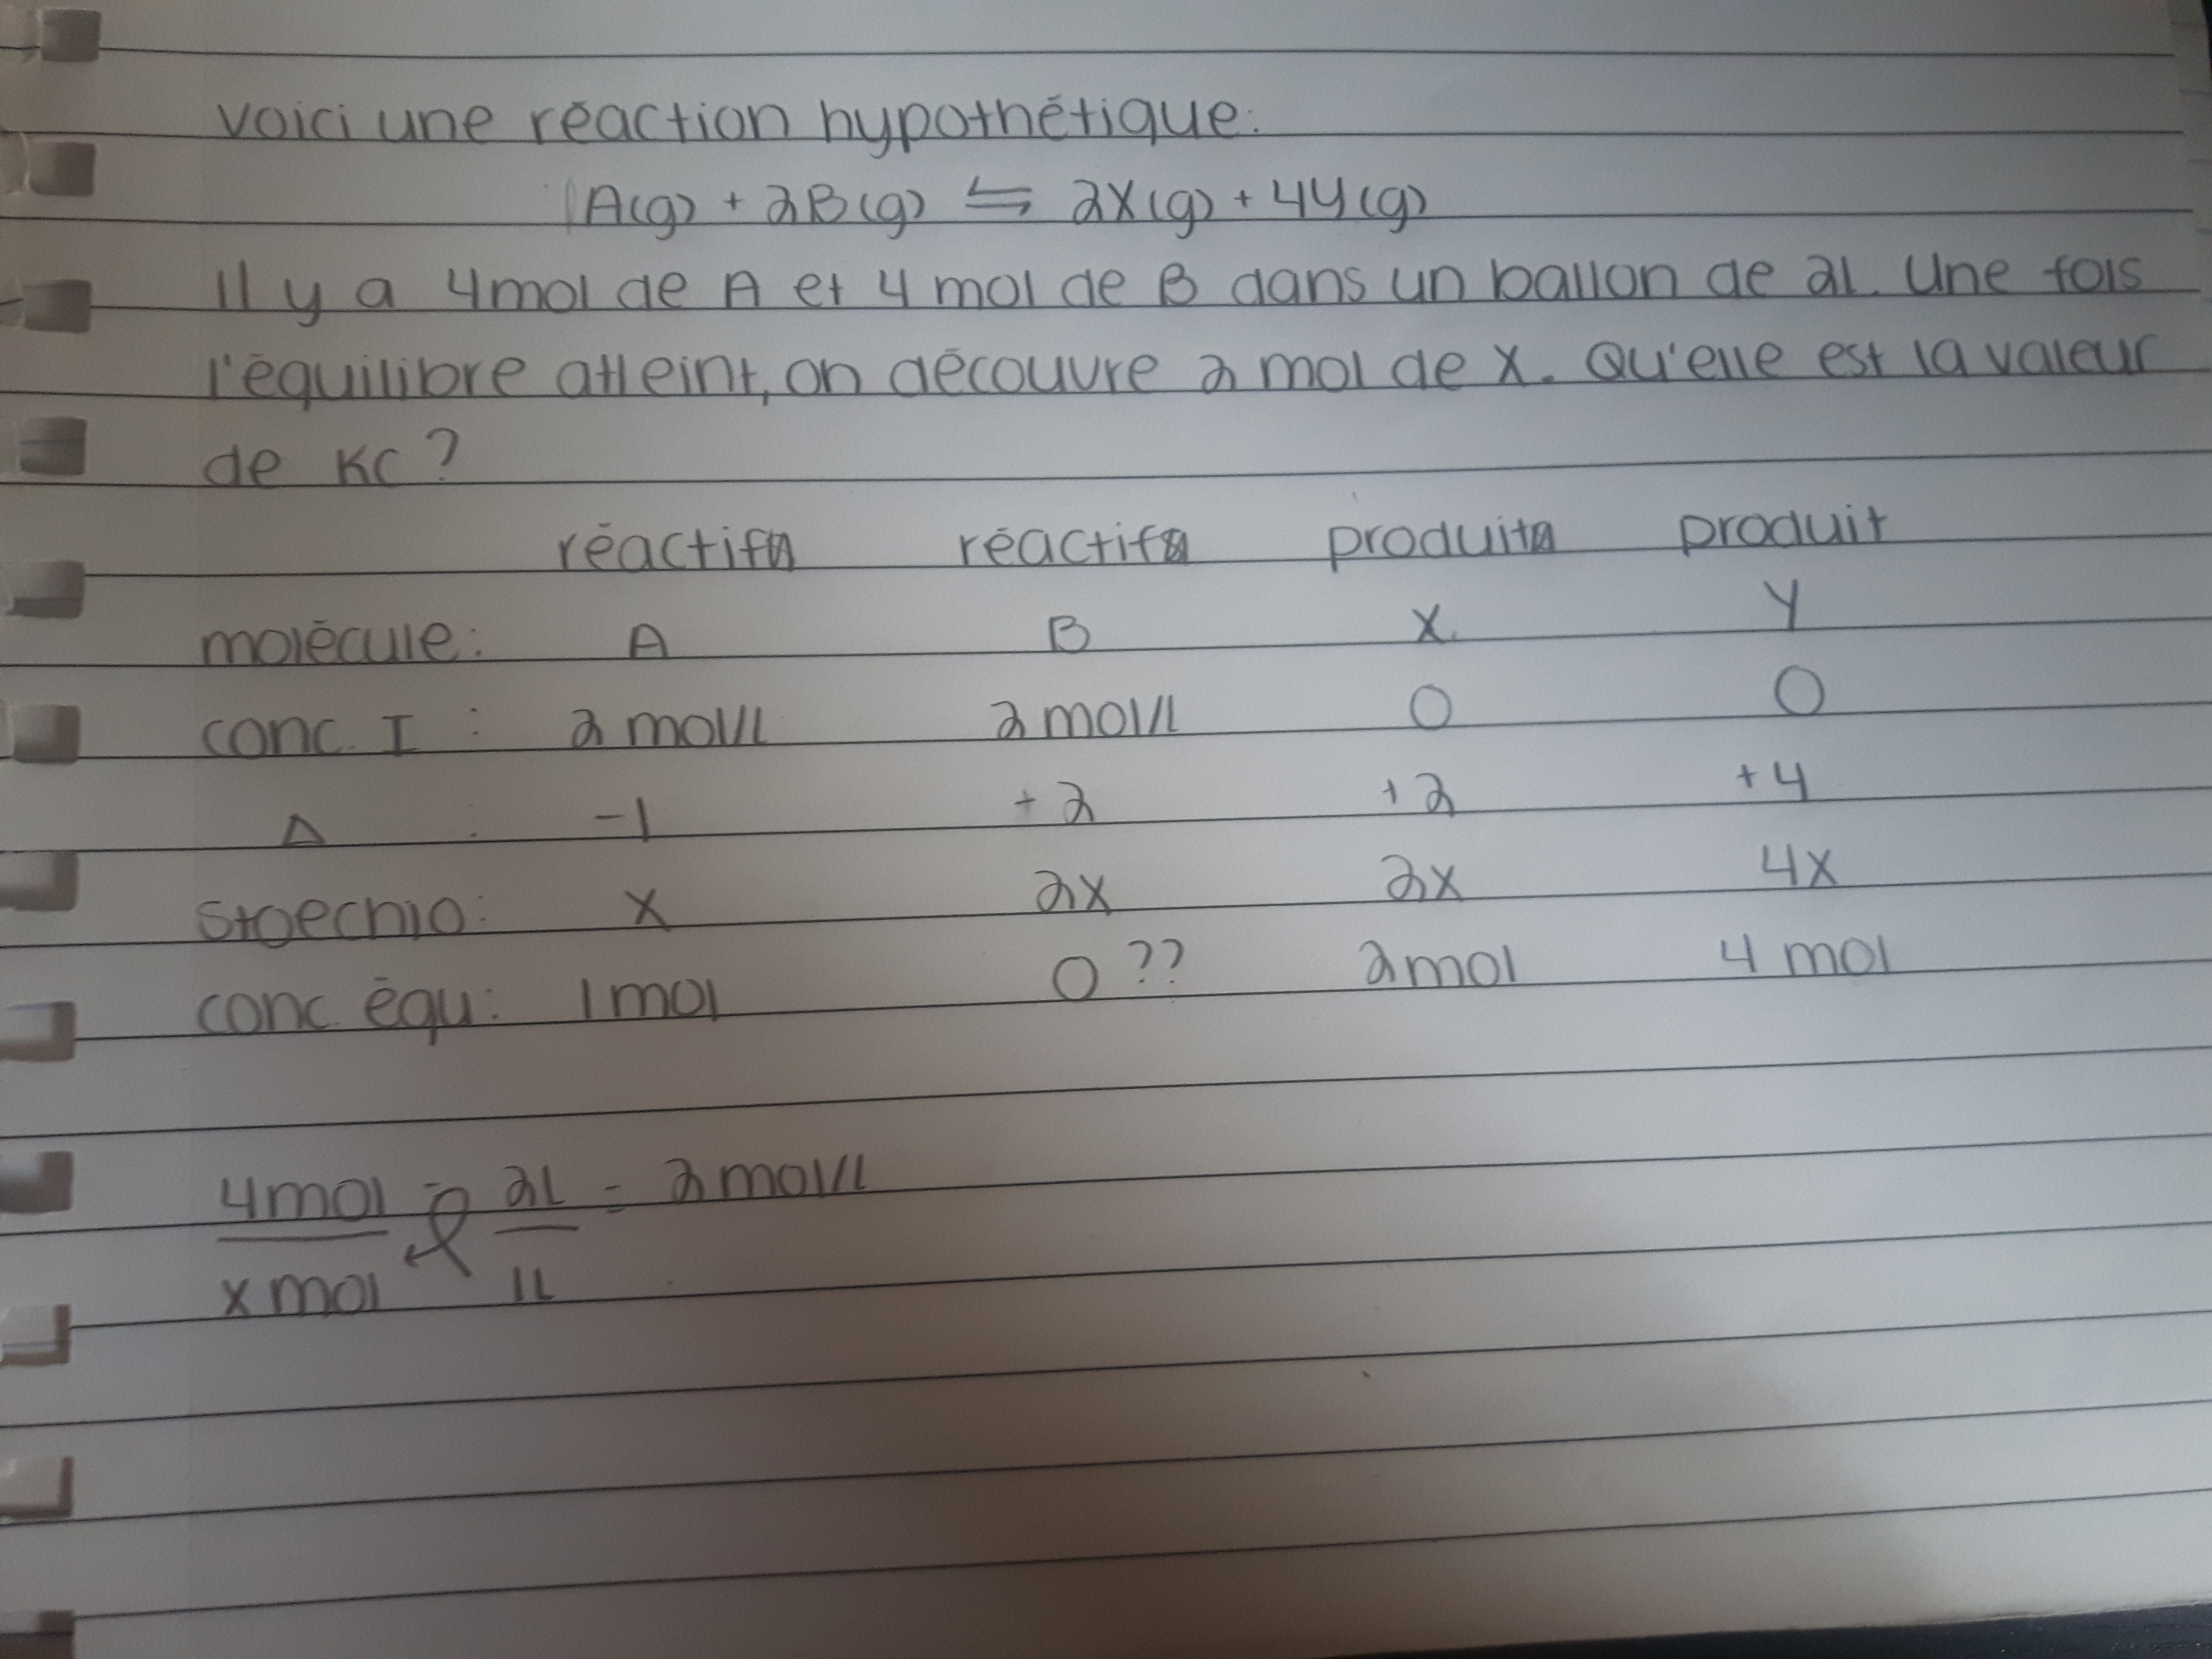 Voici une réaction hypothétique:
A(g) + 2B(g) ⇆ 2X(g) + 4Y(g)
Il y a 4 mol de A et 4 mol de B dans un ballon de 2L. Une fois
l'équilibre atteint, on découvre 2 mol de X. Qu'elle est la valeur
de KC?
réactif réactif produit produit
molécule: A B X Y
conc. I : 2 mol/L 2 mol/L 0 0
Δ : -1 + 2 + 2 + 4
stoechio: x 2x 2x 4x
conc. équ: 1 mol 0 ?? 2 mol 4 mol
4 mol = 2L = 2 mol/L
x mol 1L